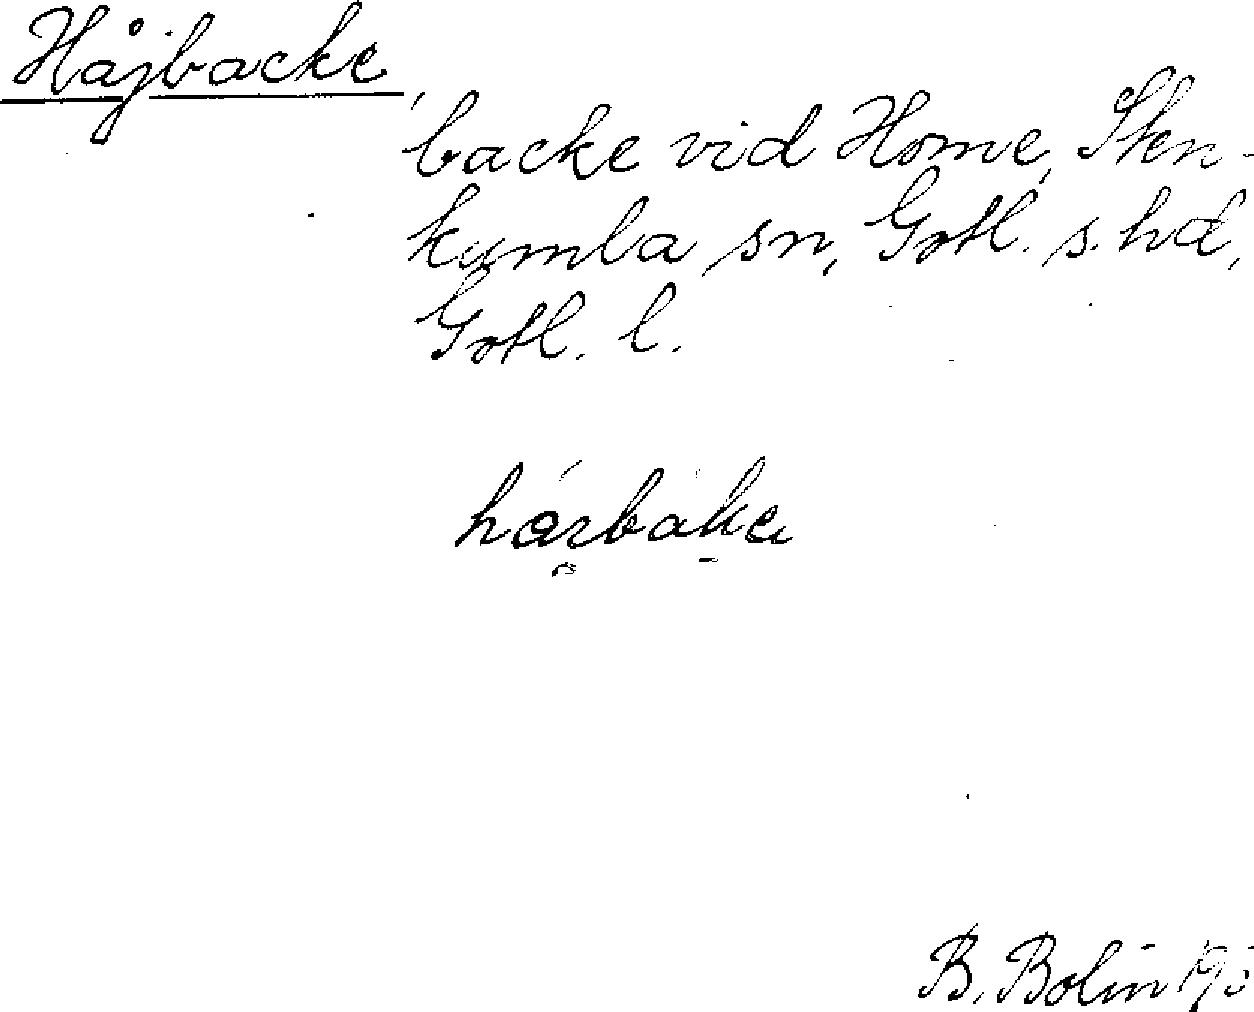 Håjbacke,
backe vid Home, Sten-
kumla sn, Gotl. s. hd,
Gotl. l.
B. Bolin 193